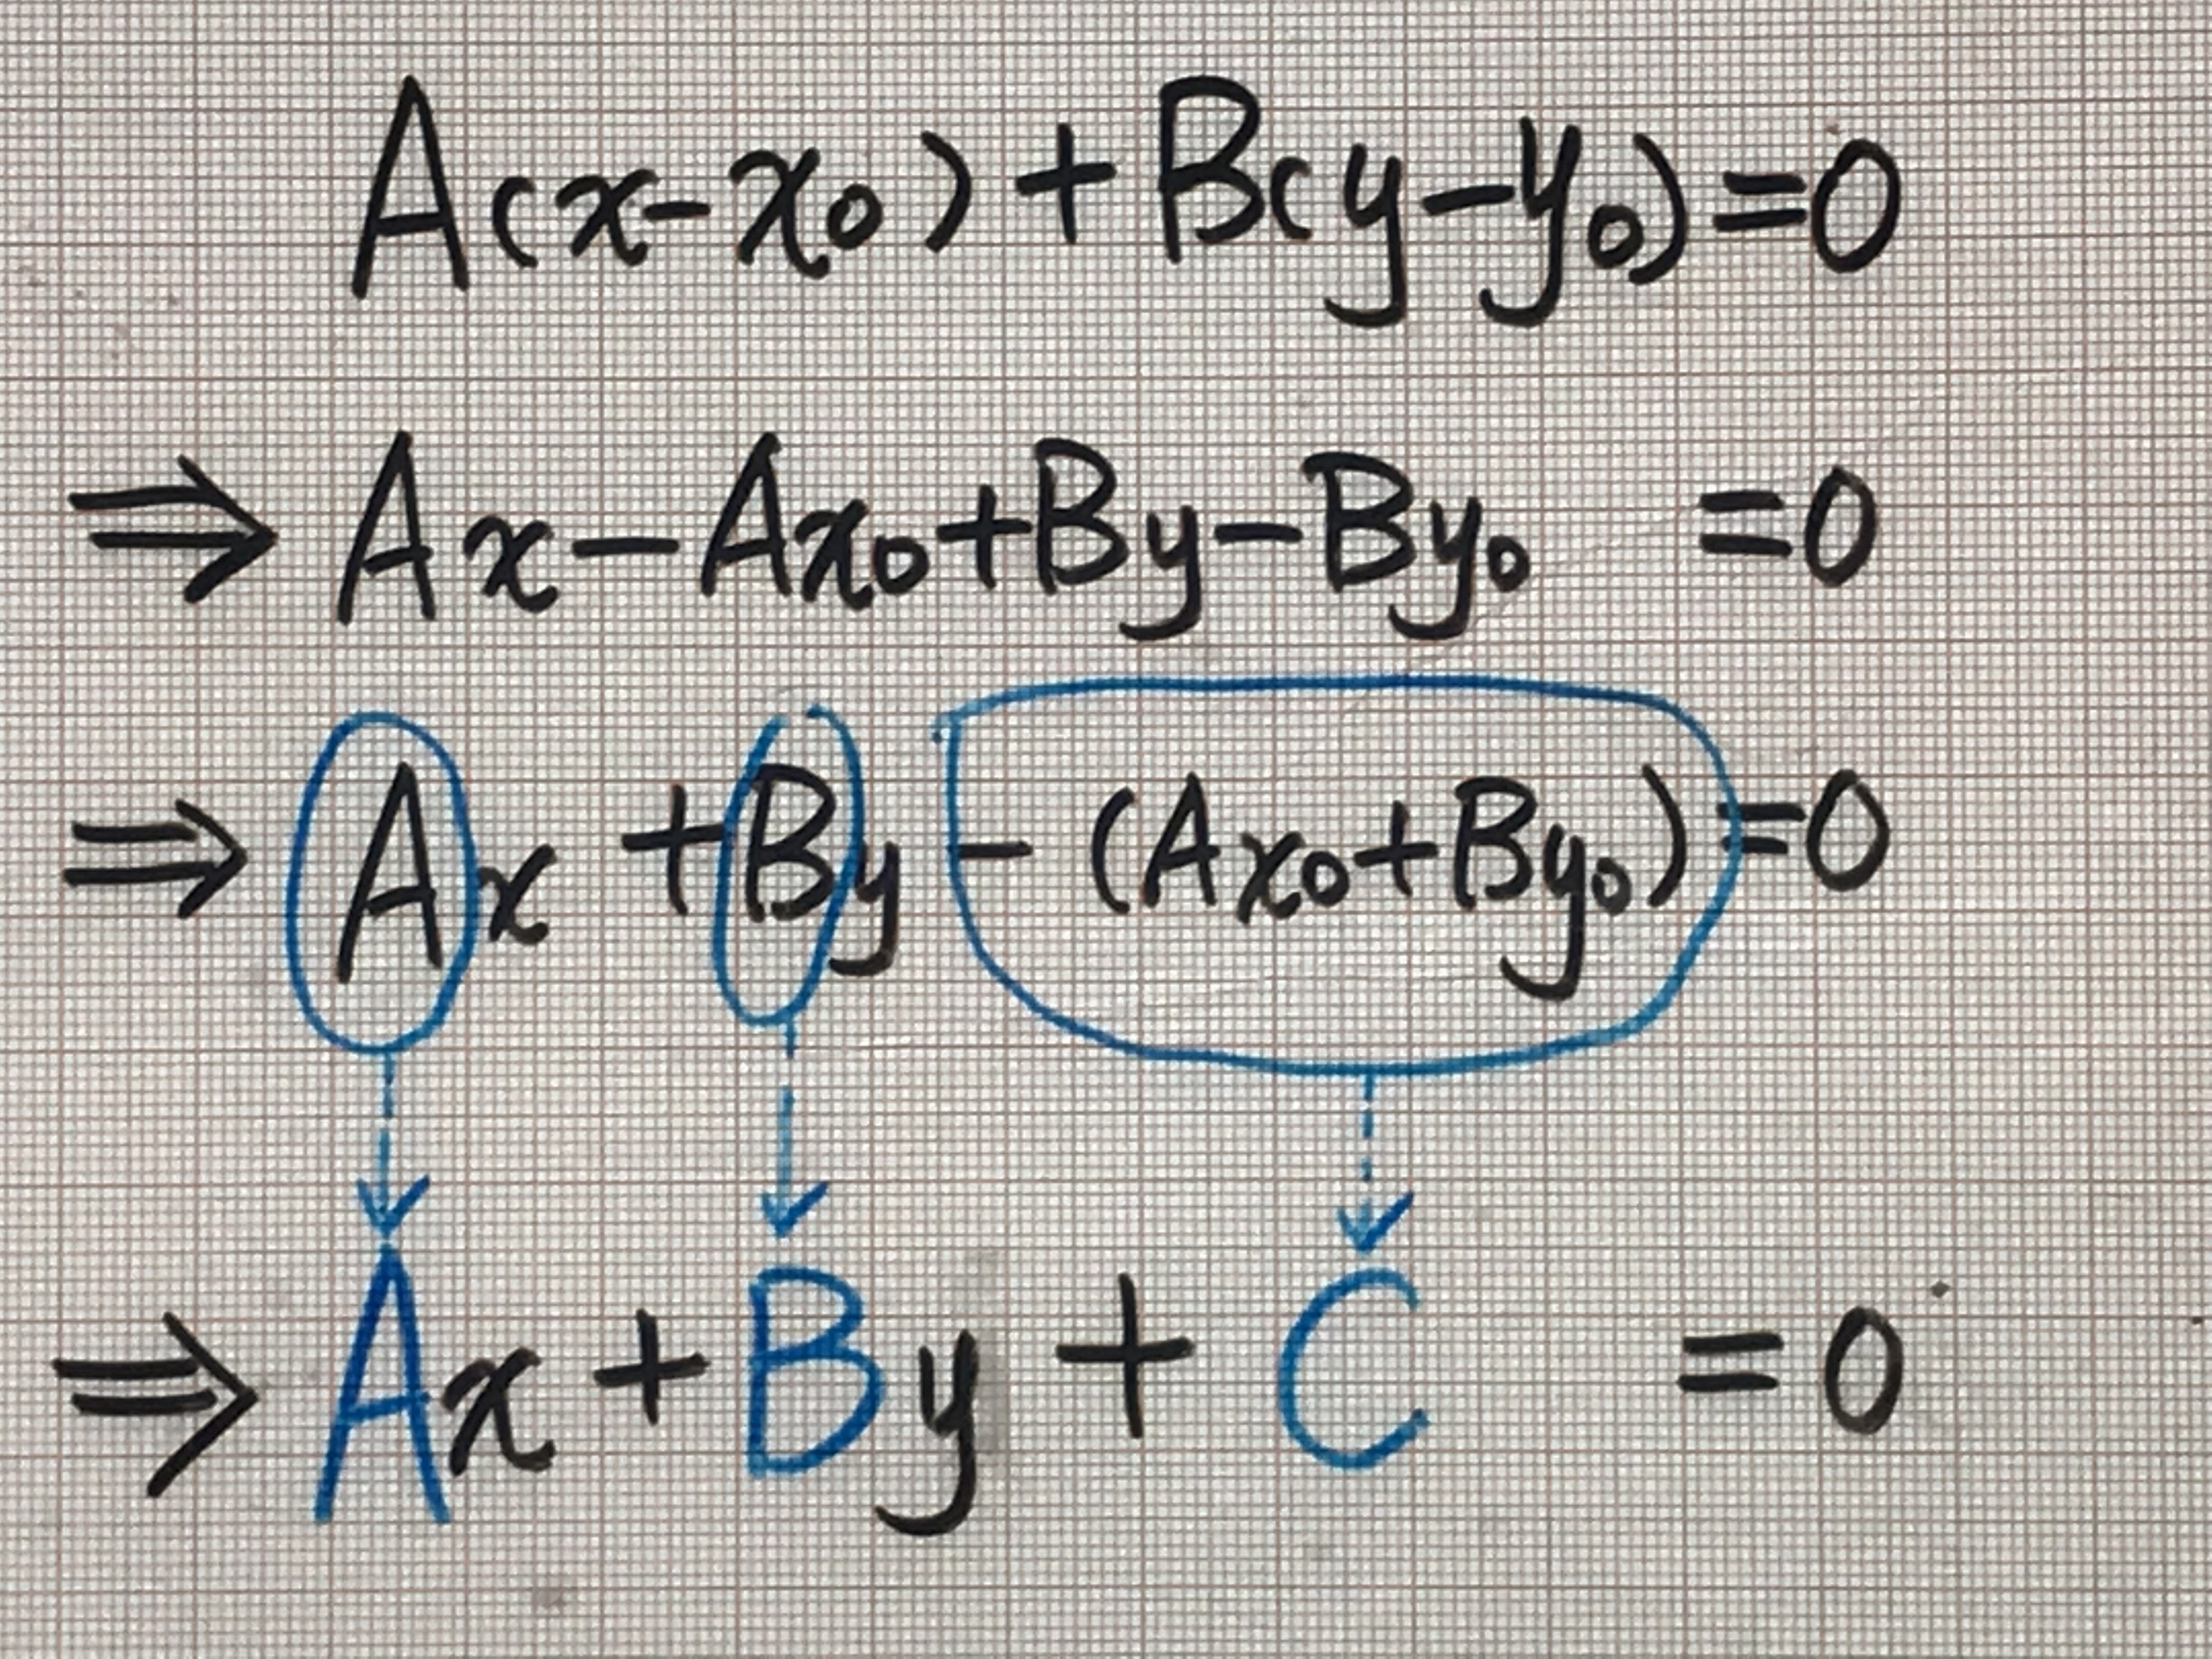 A(x-x₀)+B(y-y₀)=0
⇒Ax-Ax₀+By-By₀=0
⇒Ax+By-(Ax₀+By₀)=0
⇒Ax+By+C=0